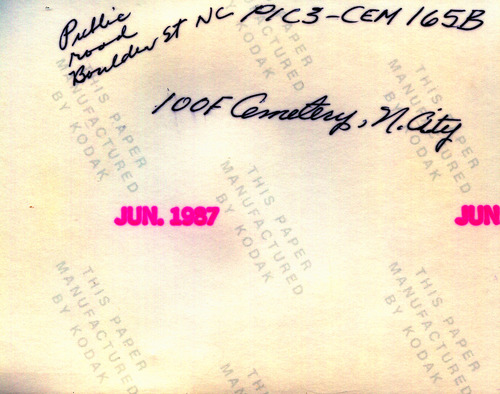 Public
road
Boulder St NC PIC3-CEM 165B
IOOF Cemetery, N. City
THIS PAPER
MANUFACTURED
BY KODAK
THIS PAPER
MANUFACTURED
BY KODAK
THIS PAPER
MANUFACTURED
BY KODAK
THIS PAPER
MANUFACTURED
BY KODAK
JUN. 1987
JUN
THIS PAPER
MANUFACTURED
BY KODAK
THIS PAPER
MANUFACTURED
BY KODAK
TH
MAN